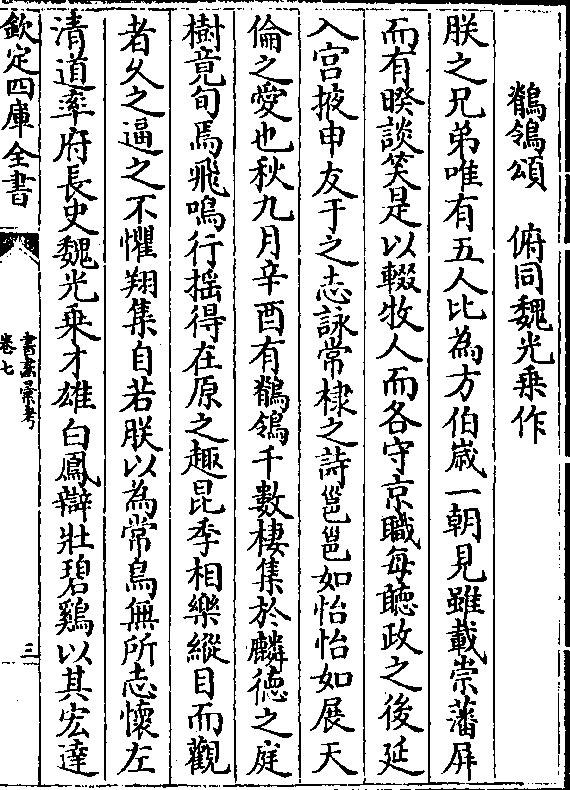 鶺鴒頌　俯同魏光乗作
朕之兄弟唯有五人比為方伯嵗一朝見雖載崇藩屏
而有暌談笑是以輟牧人而各守京職每聽政之後延
入宫掖申友于之志詠常棣之詩邕邕如怡怡如展天
倫之愛也秋九月辛酉有鶺鴒千數棲集於麟徳之庭
樹竟旬焉飛鳴行摇得在原之趣昆季相樂縱目而觀
者乆之逼之不懼翔集自若朕以為常鳥無所志懷左
清道率府長史魏光乗才雄白鳳辯壯碧鷄以其宏達
欽定四庫全書
書畫彚考
卷七
三